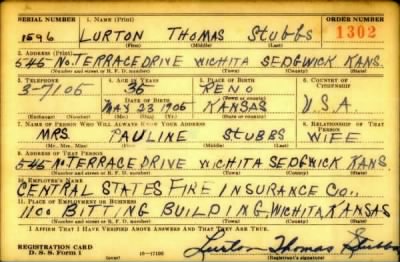 SERIAL NUMBER 1. NAME (Print) ORDER NUMBER
1596 LURTON THOMAS STUBBS 1302
(First) (Middle) (Last)
2. ADDRESS (Print)
545 NO. TERRACE DRIVE WICHITA SEDGWICK KANS.
(Number and street or R. F. D. number) (Town) (County) (State)
3. TELEPHONE 4. AGE IN YEARS 5. PLACE OF BIRTH 6. COUNTRY OF CITIZENSHIP
3-7105 35 RENO
DATE OF BIRTH (Town or county)
MAY 23 1905 KANSAS U.S.A.
(Exchange) (Number) (Mo.) (Day) (Yr.) (State or country)
7. NAME OF PERSON WHO WILL ALWAYS KNOW YOUR ADDRESS 8. RELATIONSHIP OF THAT PERSON
MRS. PAULINE STUBBS WIFE
(Mr., Mrs., Miss) (First) (Middle) (Last)
9. ADDRESS OF THAT PERSON
545 N TERRACE DRIVE WICHITA SEDGWICK KANS
(Number and street or R. F. D. number) (Town) (County) (State)
10. EMPLOYER'S NAME
CENTRAL STATES FIRE INSURANCE CO.,
11. PLACE OF EMPLOYMENT OR BUSINESS
1100 BITTING BUILDING, WICHITA, KANSAS
(Number and street or R. F. D. number) (Town) (County) (State)
I AFFIRM THAT I HAVE VERIFIED ABOVE ANSWERS AND THAT THEY ARE TRUE.
REGISTRATION CARD
D. S. S. Form 1 16-17105 Lurton Thomas Stubbs
(Registrant's signature)